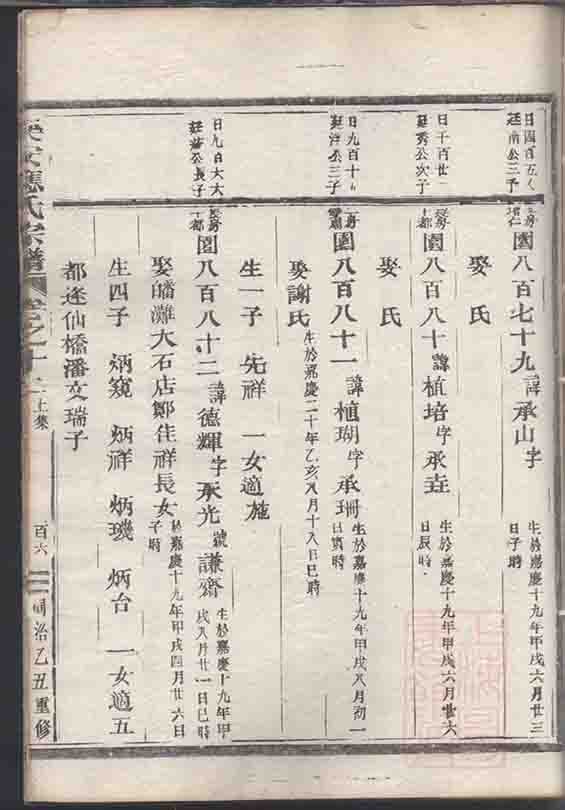 日四百五
廷南公三子
園八百七十九 諱承山字
生於嘉慶十九年甲戌六月廿三
日子時
娶 氏
日千百廿二
廷秀公次子
園八百八十 諱植培字承垚
生於嘉慶十九年甲戌六月廿六
日辰時
娶 氏
日九百十
廷洋公三子
園八百八十一 諱植瑚字承珊
生於嘉慶十九年甲戌八月初一
日寅時
娶謝氏 生於嘉慶二十年乙亥八月十八日巳時
生一子 先祥 一女適施
日九百六六
公長子
園八百八十二 諱德輝字承光號謙齋
生於嘉慶十九年甲
戌八月廿一日巳時
娶皤灘大石店鄭佳祥長女
於嘉慶十九年甲戌四月廿六日
子時
生四子 炳窺 炳祥 炳璣 炳台 一女適五
都逢仙橋潘文瑞子
應氏宗譜 卷之十 上集 百六 同治乙丑重修